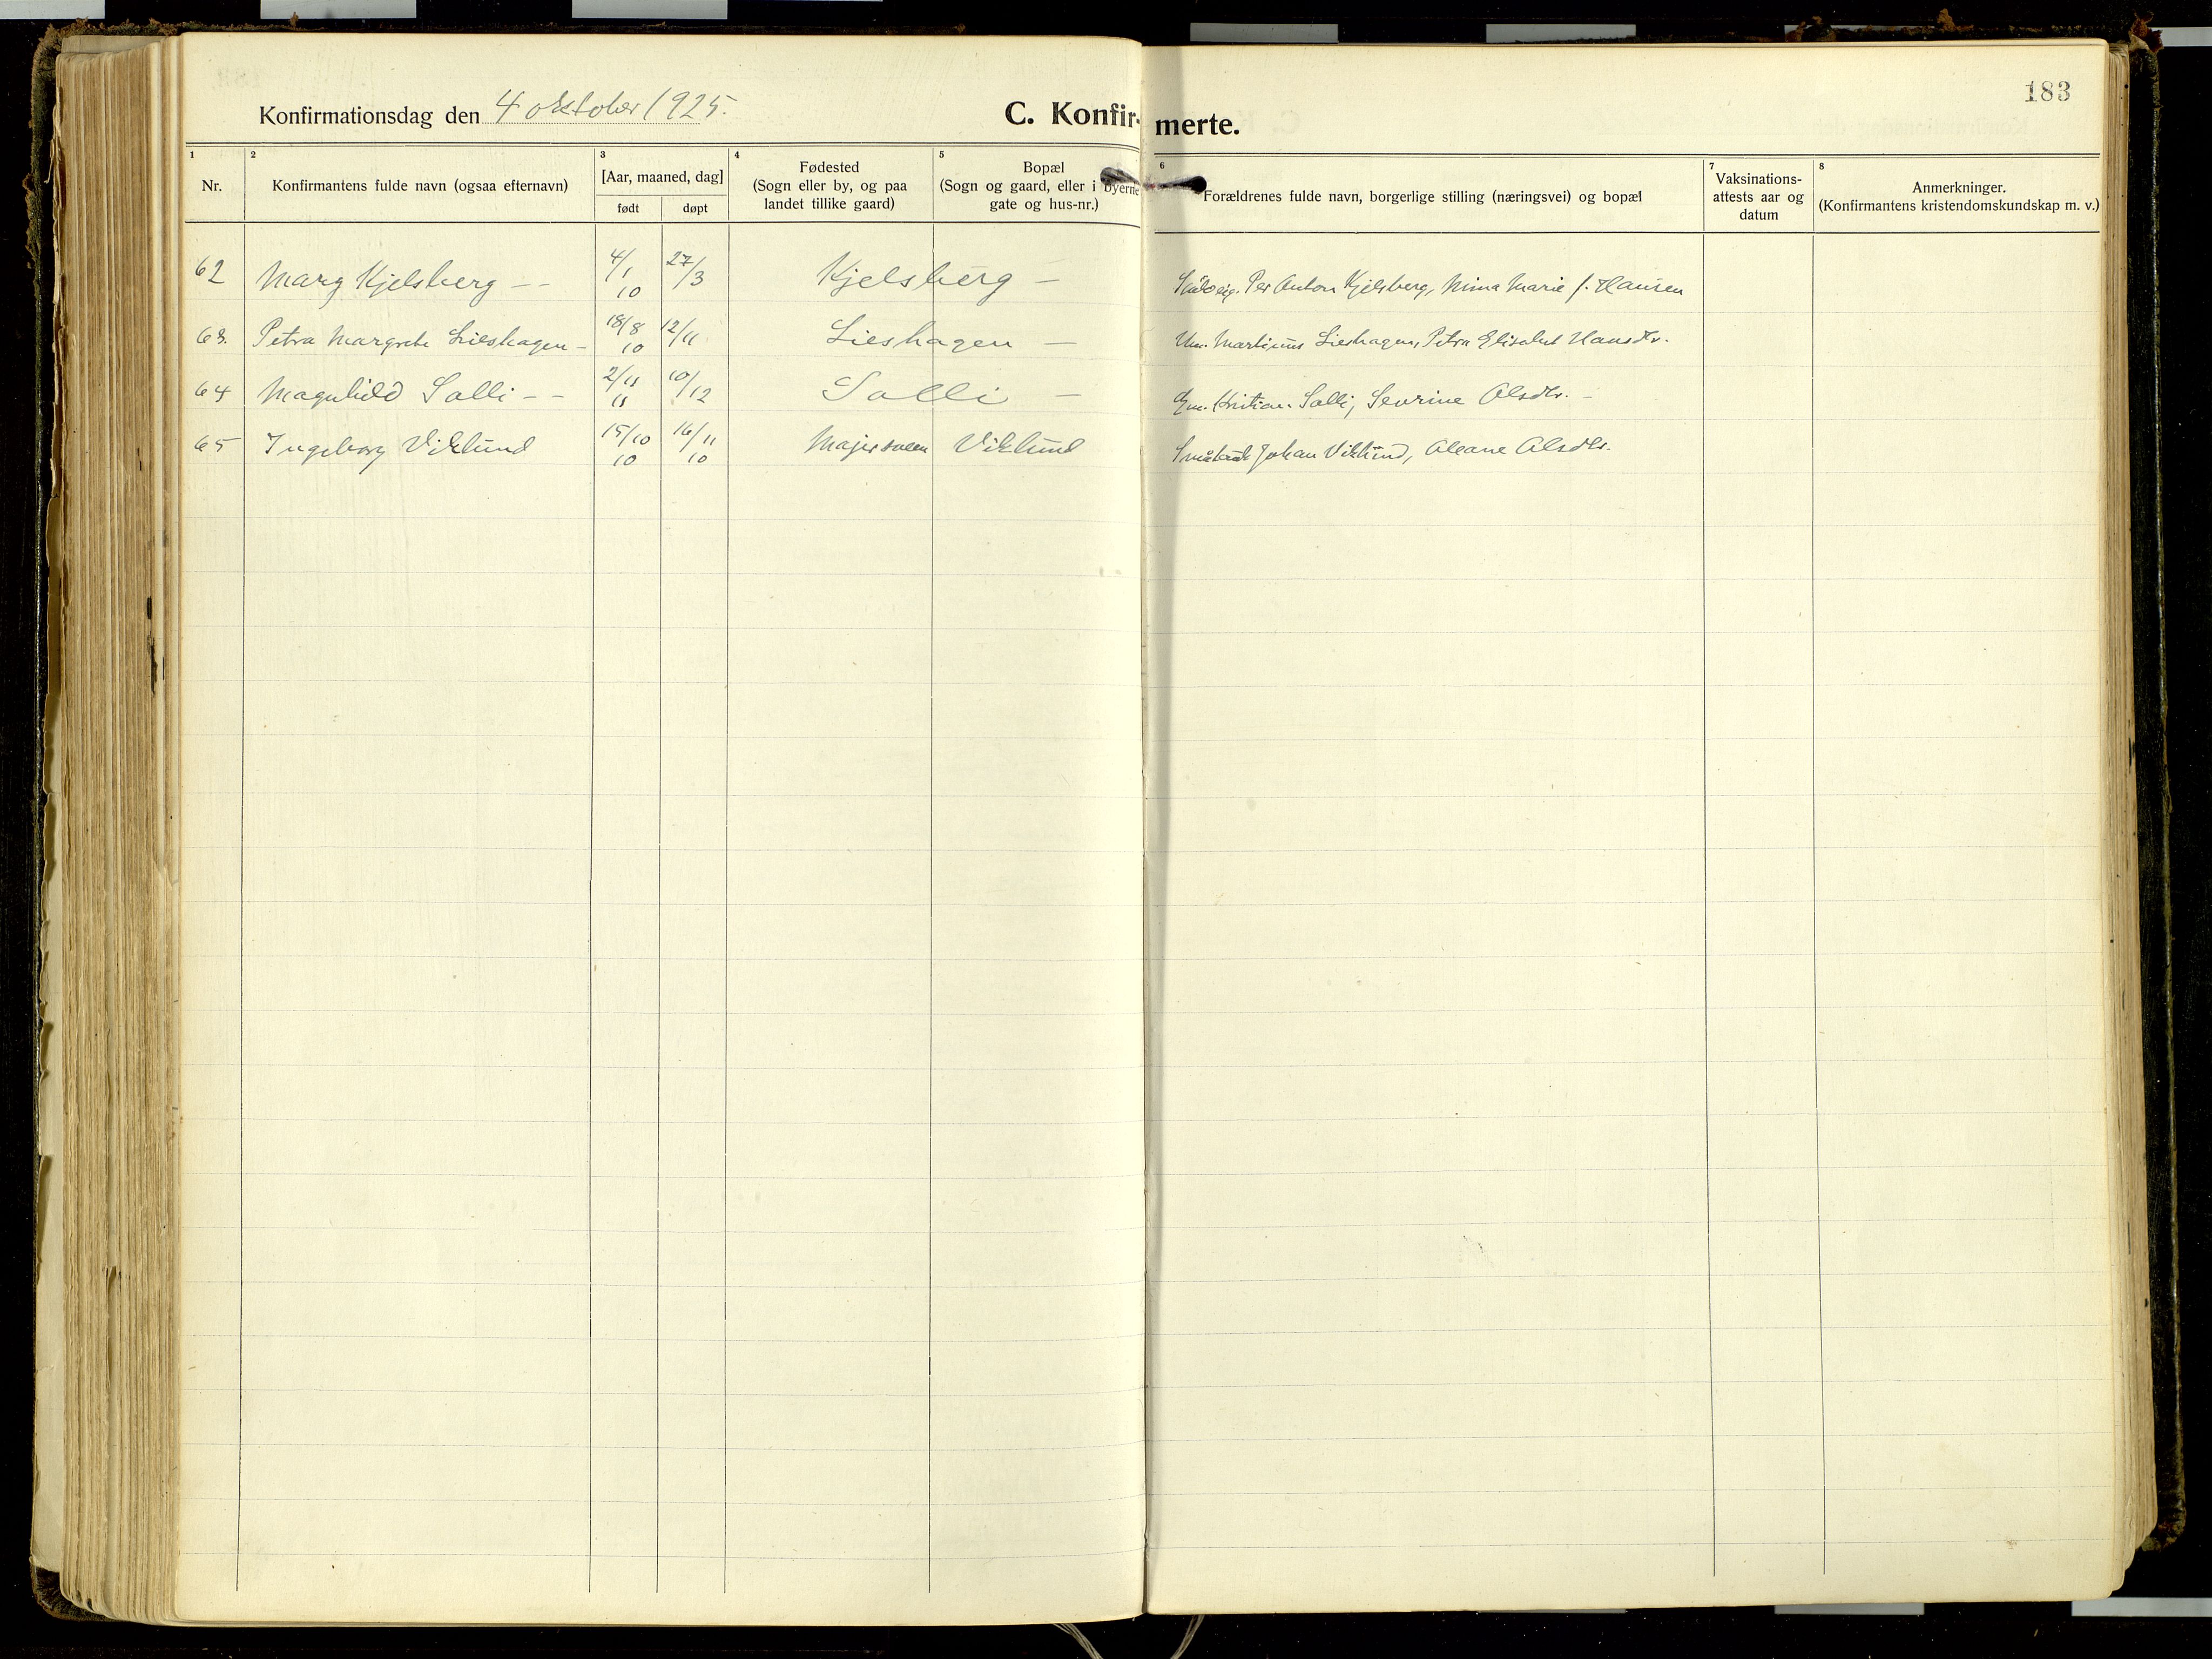 183
Konfirmationsdag den 4 oktober 1925.
C. Konfir- merte.
1 2 3 4 5 6 7 8
Nr.
Konfirmantens fulde navn (ogsaa efternavn)
[Aar, maaned, dag]
født døpt
Fødested
(Sogn eller by, og paa
landet tillike gaard)
Bopæl
(Sogn og gaard, eller i byerne
gate og hus-nr.)
Forældrenes fulde navn, borgerlige stilling (næringsvei) og bopæl
Vaksinations-
attests aar og
datum
Anmerkninger.
(Konfirmantens kristendomskundskap m. v.)
62 Marg Kjelsberg - - 4/1 10 27/3 Kjelsberg - Per Anton Kjelsberg, Mina Marie f. Hansen
63. Petra Margrete Lieshagen - 18/8 10 12/11 Lieshagen - Martinus Lieshagen, Petra Elisabet Hansdtr.
64 Magnhild Solli - - 2/11 11 10/12 Solli - Kristian Solli, Sevrine Olsdtr. -
65 Ingeborg Viklund 15/10 10 16/11 10 Viklund Johan Viklund, Oleane Olsdtr.